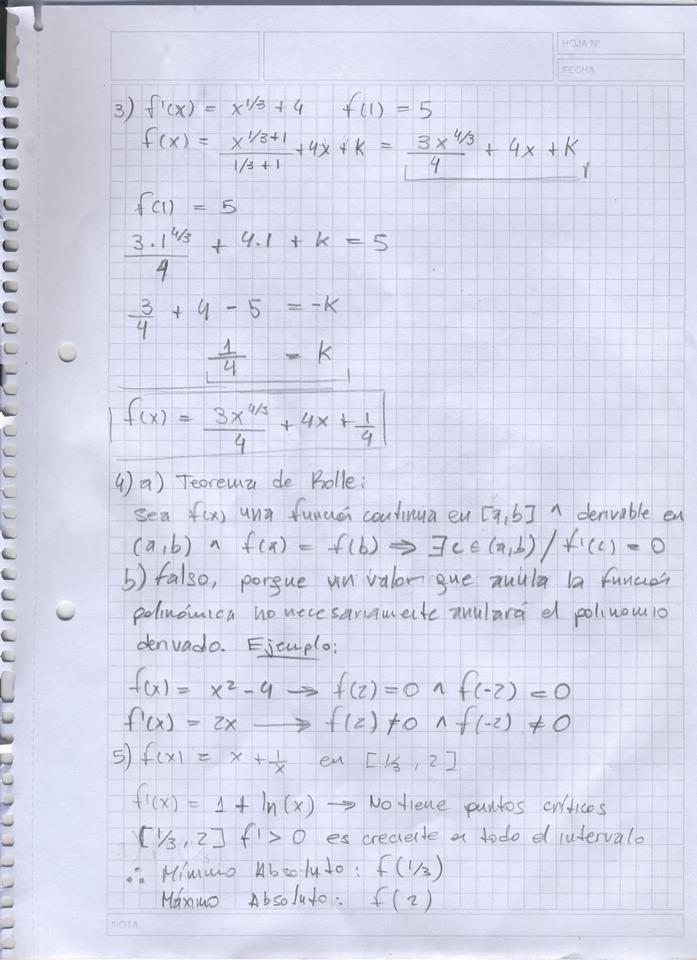 HOJA N°
FECHA
3) f'(x) = x^1/3 + 4 f(1) = 5
f(x) = x^(1/3+1)/(1/3+1) + 4x + K = 3x^4/3/4 + 4x + K
f(1) = 5
3·1^4/3/4 + 4·1 + K = 5
3/4 + 4 - 5 = -K
1/4 = K
f(x) = 3x^4/3/4 + 4x + 1/4
4) a) Teorema de Rolle:
Sea f(x) una función continua en [a,b] ∧ derivable en
(a,b) ∧ f(a) = f(b) ⇒ ∃ c ∈ (a,b) / f'(c) = 0
b) Falso, porque un valor que anula la función
polinómica no necesariamente anulará el polinomio
derivado. Ejemplo:
f(x) = x² - 4 → f(2) = 0 ∧ f(-2) = 0
f'(x) = 2x → f(2) ≠ 0 ∧ f(-2) ≠ 0
5) f(x) = x + 1/x en [1/3, 2]
f'(x) = 1 + ln(x) → No tiene puntos críticos
[1/3, 2] f' > 0 es creciente en todo el intervalo
∴ Mínimo Absoluto: f(1/3)
Máximo Absoluto: f(2)
NOTA